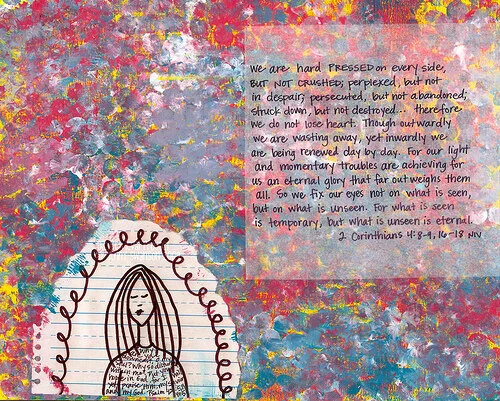 We are hard PRESSED on every side,
BUT NOT CRUSHED; perplexed, but not
in despair; persecuted, but not abandoned;
struck down, but not destroyed... therefore
we do not lose heart. Though outwardly
we are wasting away, yet inwardly we
are being renewed day by day. For our light
and momentary troubles are achieving for
us an eternal glory that far outweighs them
all. So we fix our eyes not on what is seen,
but on what is unseen. For what is seen
is temporary, but what is unseen is eternal.
2 Corinthians 4:8-9, 16-18 NIV
Why so
me? Put your
hope in God, for I
praise Him, my
and my God. Psalm